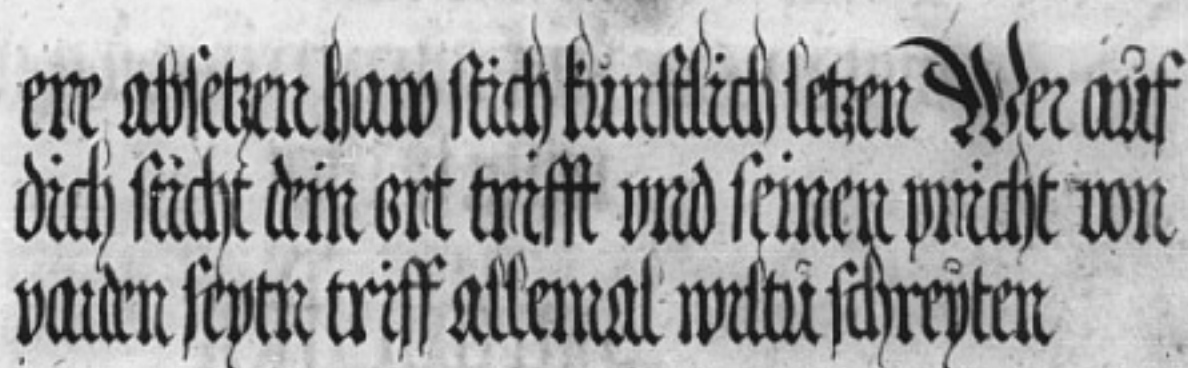 ere absetzen haw stich kunstlich letzen Wer auf
dich sticht dein ort trifft vnd seinen pricht von
paiden seytn triff allemal wiltu schreyten